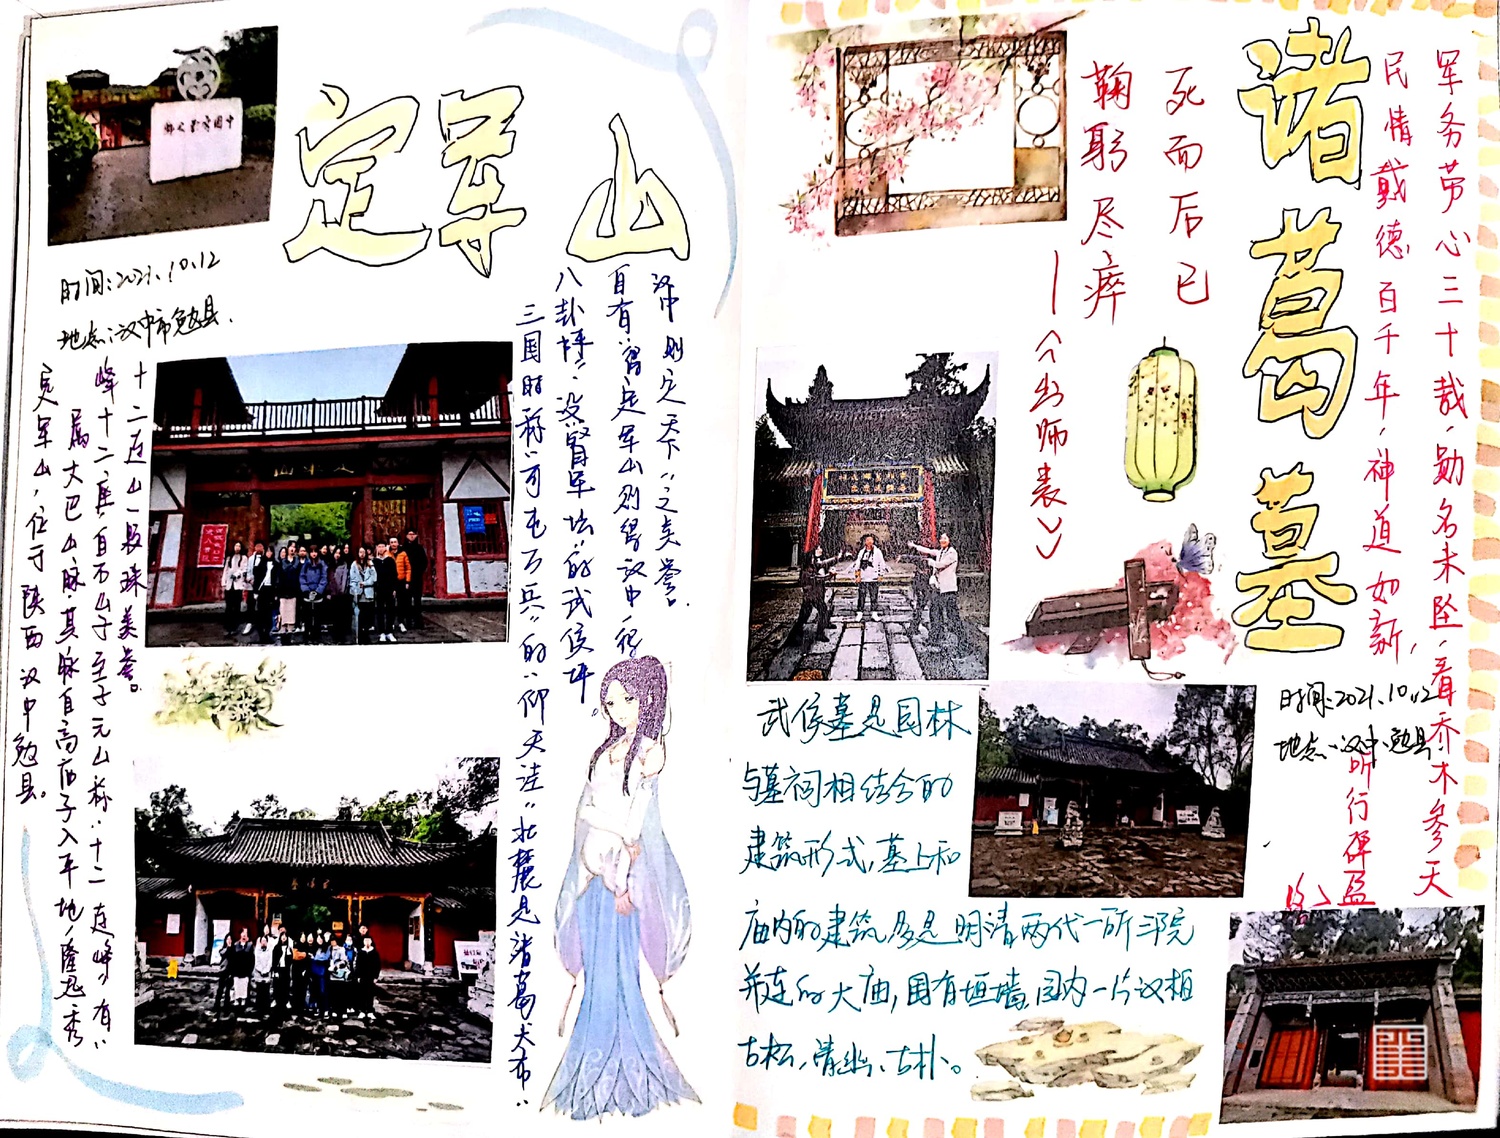 定军山
时间:2021.10.12
地点:汉中市勉县.
定军山,位于陕西汉中勉县。
属大巴山脉其脉自高庙子入平地,隆起秀
峰十二座自石山子至元山称"十二连峰"有"
十二连山一颗珠美誉。
三国时称"可屯万兵"的"仰天洼"北麓是诸葛
八卦坪"设"督军坛"的武侯坪
自有"得定军山则得汉中,得
汉中则定天下"之美誉.
诸葛墓
军务劳心三十哉,勋名未坠,看乔木参天
民情戴德百千年,神道如新,
听行碑
死而后已
鞠躬尽瘁
—《出师表》
时间:2021.10.12
地点:汉中勉县
武侯墓是园林
与墓祠相结合的
建筑形式,墓上和
庙内的建筑多是明清两代一所三院
并连的大庙,围有垣墙,园内一片汉柏
古松,清幽、古朴。